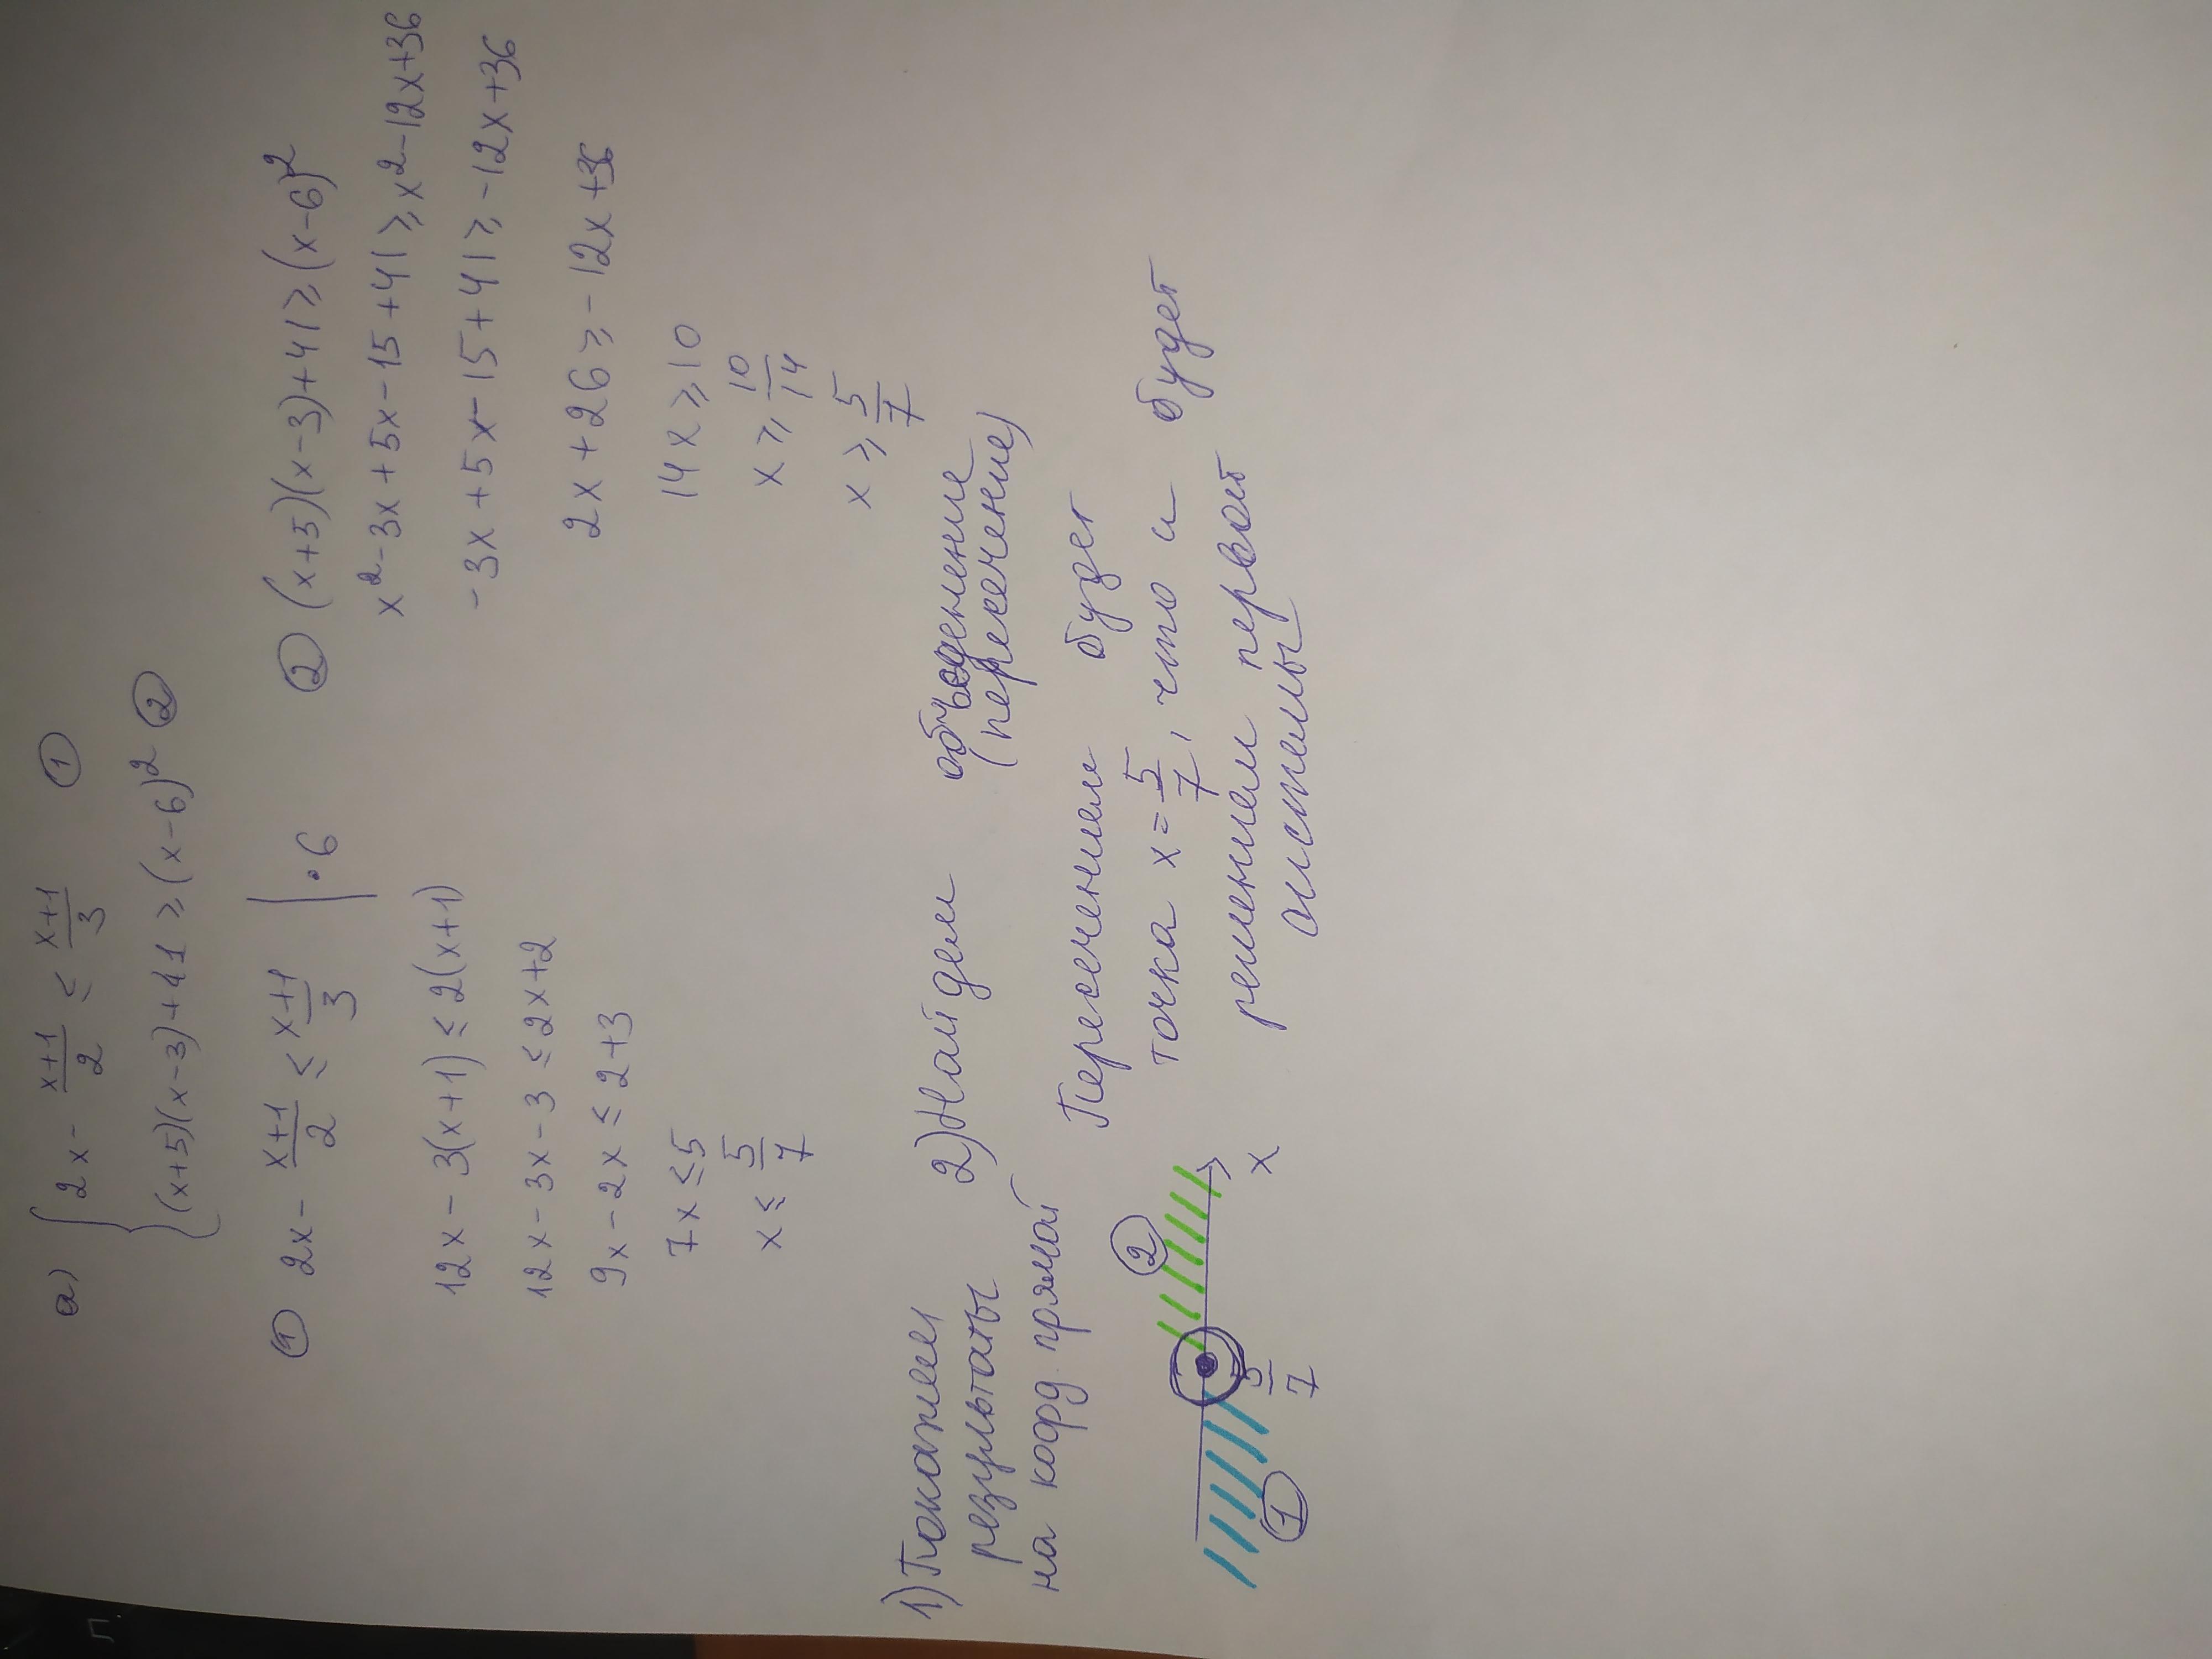 а) { 2x - (x+1)/2 ≤ (x+1)/3 ①
(x+5)(x-3)+41 ≥ (x-6)² ②
① 2x - (x+1)/2 ≤ (x+1)/3 | · 6
12x - 3(x+1) ≤ 2(x+1)
12x - 3x - 3 ≤ 2x+2
9x - 2x ≤ 2+3
7x ≤ 5
x ≤ 5/7
② (x+5)(x-3)+41 ≥ (x-6)²
x²-3x+5x-15+41 ≥ x²-12x+36
-3x+5x-15+41 ≥ -12x+36
2x+26 ≥ -12x+36
14x ≥ 10
x ≥ 10/14
x ≥ 5/7
1) Покажем
результаты
на коорд прямой
②
5/7
x
①
2) Найдем объеденение
(пересечение)
Пересечением будет
точка x = 5/7, что и будет
решением первой
системы